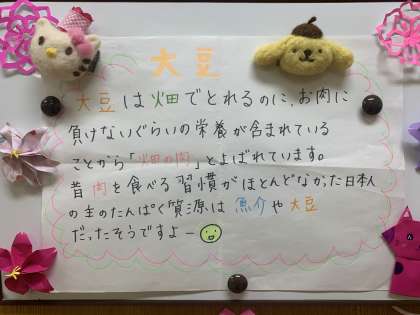 大豆
大豆は畑でとれるのに、お肉に
負けないぐらいの栄養が含まれている
ことから「畑の肉」とよばれています。
昔肉を食べる習慣がほとんどなかった日本人
の主のたんぱく質源は魚介や大豆
だったそうですよー